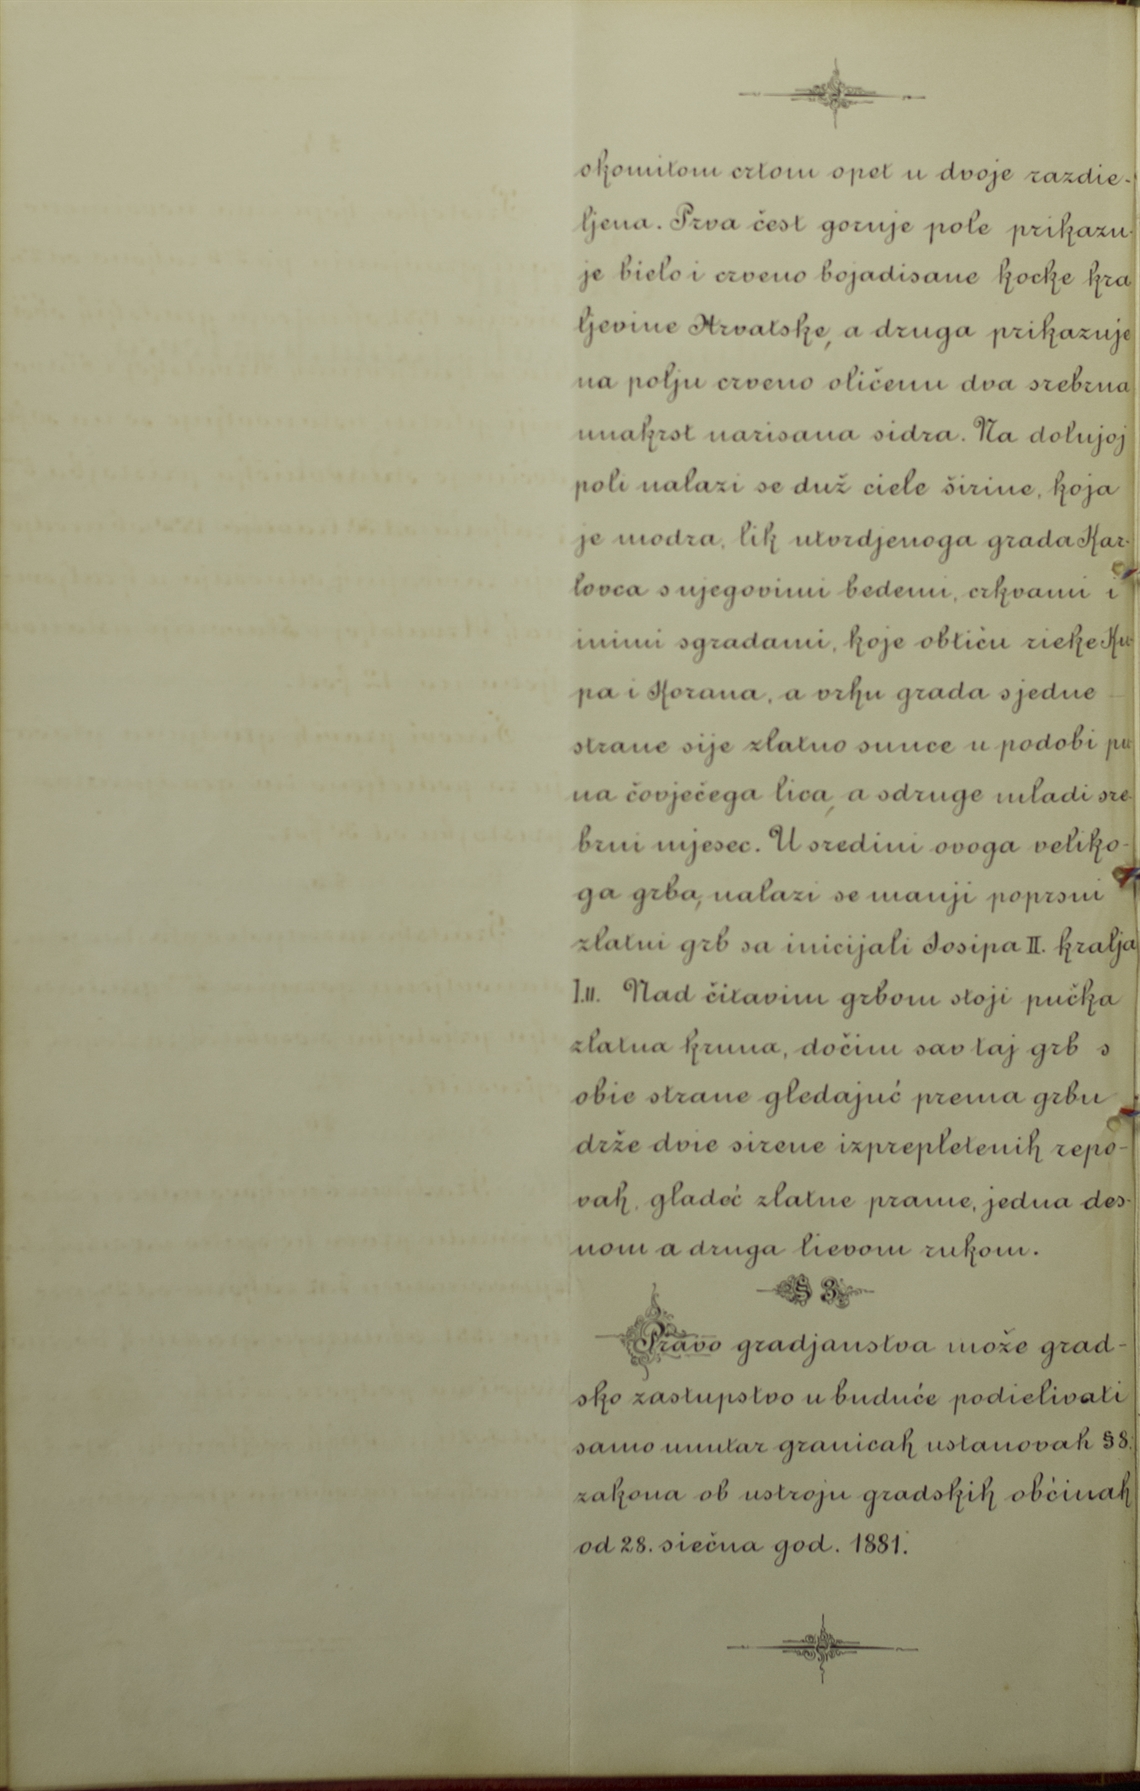 okomitom crtom opet u dvoje razdie-
ljena. Prva čest gornje pole prikazu-
je bielo i crveno bojadisane kocke kra
ljevine Hrvatske, a druga prikazuje
na polju crveno oličenu dva srebrna
unakrst narisana sidra. Na dolnjoj
poli nalazi se duž ciele širine, koja
je modra, lik utvrdjenoga grada Kar-
lovca s njegovimi bedemi, crkvami i
inimi sgradami, koje obtiču rieke Ku-
pa i Korana, a vrhu grada s jedne
strane sije zlatno sunce u podobi pu
na čovječega lica, a sdruge mladi sre
brni mjesec. U sredini ovoga veliko-
ga grba, nalazi se manji poprsni
zlatni grb sa inicijali Josipa II. kralja
I.II. Nad čitavim grbom stoji pučka
zlatna kruna, dočim sav taj grb s
obie strane gledajuć prema grbu
drže dvie sirene izprepletenih repo-
vah, gladeć zlatne prame, jedna des-
nom a druga lievom rukom.
§ 3.
Pravo gradjanstva može grad-
sko zastupstvo u buduće podielivati
samo unutar granicah ustanovah § 8.
zakona ob ustroju gradskih obćinah
od 28. siečna god. 1881.